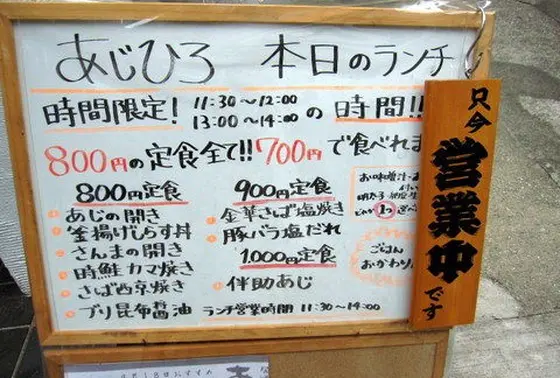 あじひろ 本日のランチ
時間限定! 11:30～12:00 13:00～14:00 の 時間!!
800円の定食全て!! 700円 で食べれま
800円定食
あじの開き
釜揚げしらす丼
さんまの開き
時鮭カマ焼き
さば西京焼き
ブリ昆布醤油
900円定食
金華さば塩焼き
豚バラ塩だれ
1,000円定食
伴助あじ
ランチ営業時間 11:30～14:00
お味噌汁・お
明太子・納豆・生
どれか1つ選べ
ごはん
おかわり
只今
営業中
です